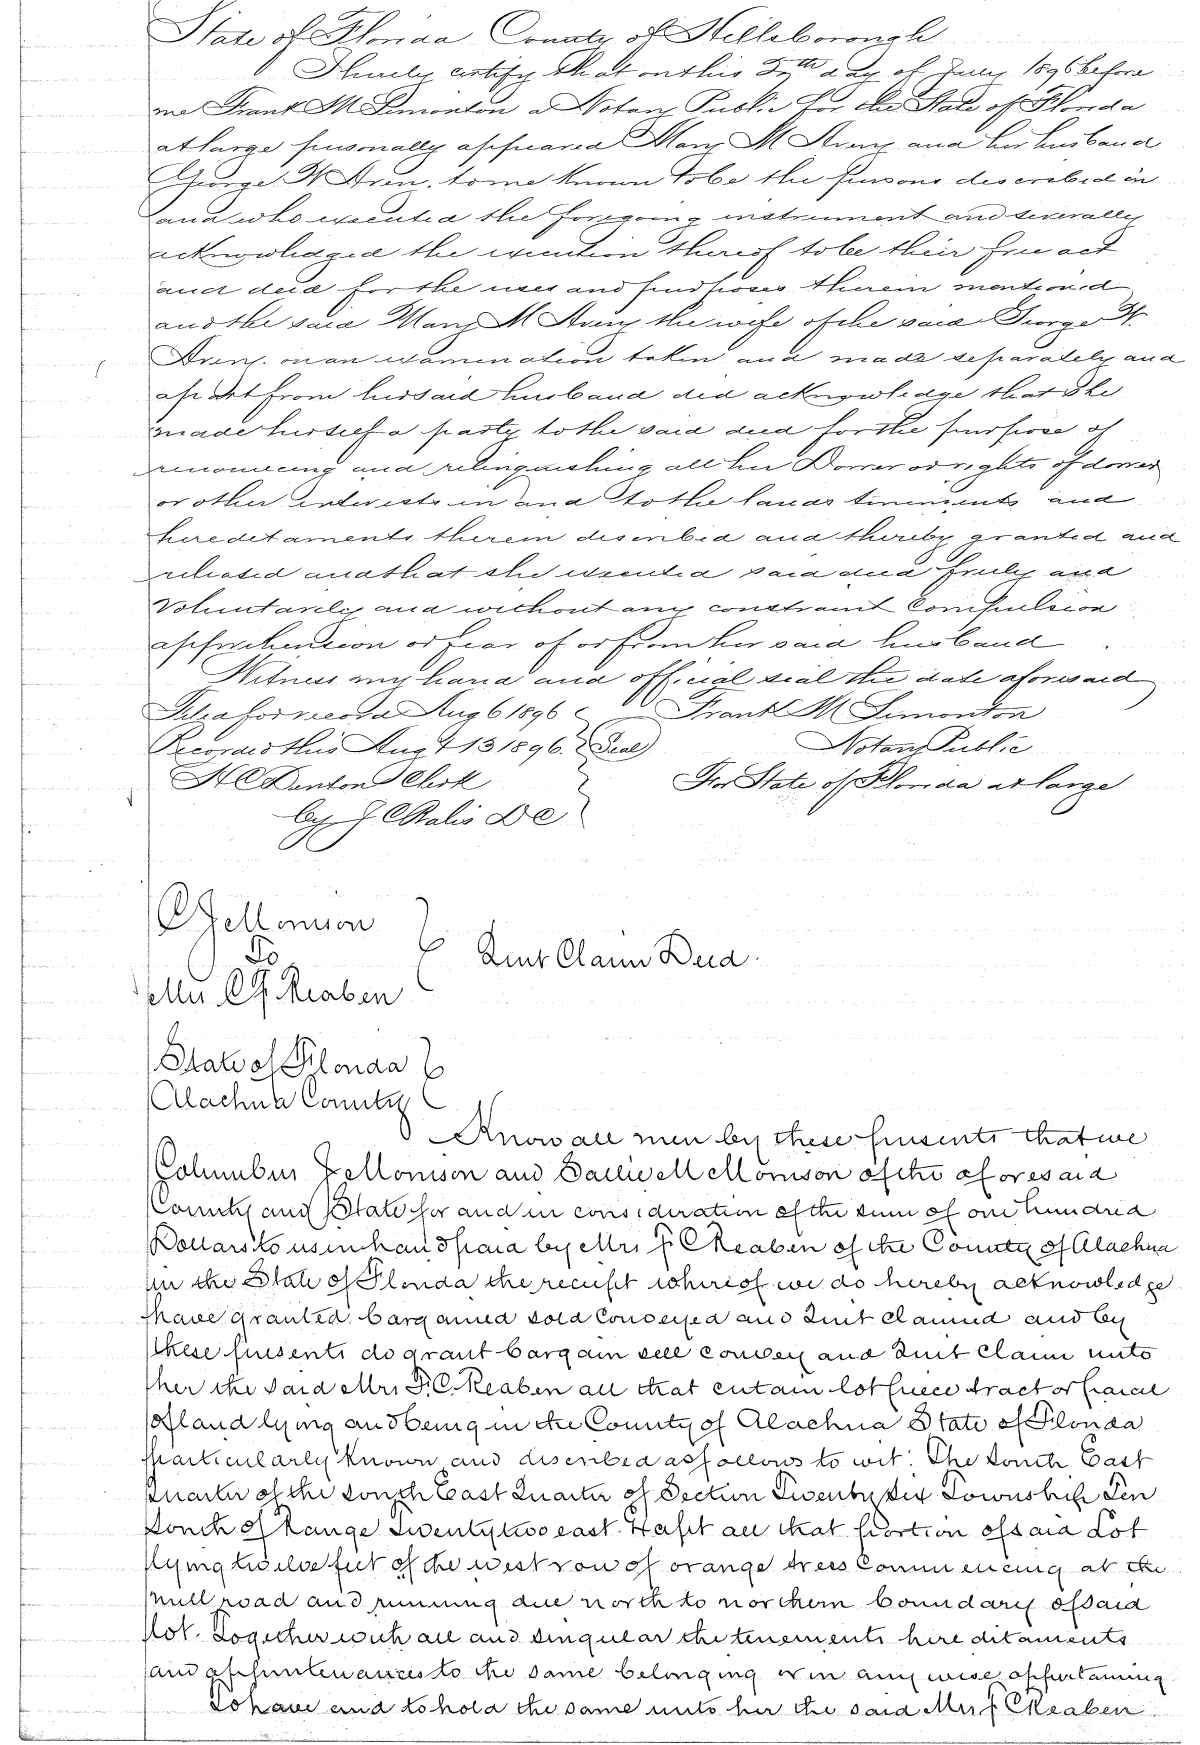 State of Florida County of Hillsborough
I hereby certify that on this day of July 1896 before
me Frank M Simonton a Notary Public for the State of Florida
at large personally appeared Mary M Avery and her husband
George W Avery. to me known to be the persons described in
and who executed the foregoing instrument and severally
acknowledged the execution thereof to be their free act
and deed for the uses and purposes therein mentioned
and the said Mary M Avery the wife of the said George W.
Avery. on an examination taken and made separately and
apart from her said husband did acknowledge that she
made herself a party to the said deed for the purpose of
renouncing and relinquishing all her Dower or rights of dower
or other interests in and to the lands tenements and
hereditaments therein described and thereby granted and
released and that she executed said deed freely and
Voluntarily and without any constraint Compulsion
apprehension or fear of or from her said husband
Witness my hand and official seal the date aforesaid
Filed for record Aug 6 1896 Frank M Simonton
Recorded this Augt 13 1896. Seal Notary Public
H C Denton Clerk For State of Florida at large
by J C DC
C J Morrison
To
Quit Claim Deed.
Mrs C F. Reaben
State of Florida
Alachua County
Know all men by these presents that we
Columbus J Morrison and Sallie M Morrison of the aforesaid
County and State for and in consideration of the sum of one hundred
Dollars to us in hand paid by Mrs F C Reaben of the County of Alachua
in the State of Florida the receipt whereof we do hereby acknowledge
have granted bargained sold Conveyed and Quit Claimed and by
these presents do grant bargain sell convey and Quit Claim unto
her the said Mrs F.C. Reaben all that certain lot piece tract or parcel
of land lying and being in the County of Alachua State of Florida
particularly known and described as follows to wit: The South East
Quarter of the South East Quarter of Section Twenty Six Township Ten
South of Range Twenty two east. all that portion of said Lot
lying twelve feet of the west row of orange trees Commencing at the
mill road and running due north to northern boundary of said
lot. Together with all and singular the tenements hereditaments
and appurtenances to the same belonging or in any wise appertaining
To have and to hold the same unto her the said Mrs F C Reaben